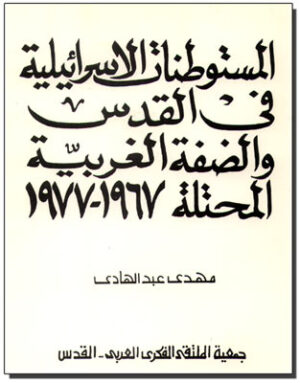 المستوطنات الاسرائيلية
في القدس
والضفة الغربيّة
المحتلة ١٩٦٧-١٩٧٧
مهدي عبد الهادي
جمعية الملتقى الفكري العربي - القدس